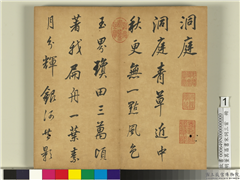 洞庭
洞庭青草近中
秋更無一點風色
玉界瓊田三萬頃
著我扁舟一葉素
月分輝銀河共影